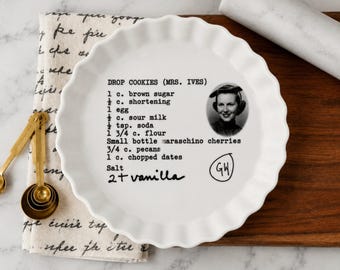 DROP COOKIES (MRS. IVES)
1 c. brown sugar
½ c. shortening
1 egg
½ c. sour milk
½ tsp. soda
1 3/4 c. flour
Small bottle maraschino cherries
3/4 c. pecans
1 c. chopped dates
Salt
2 t vanilla
GH